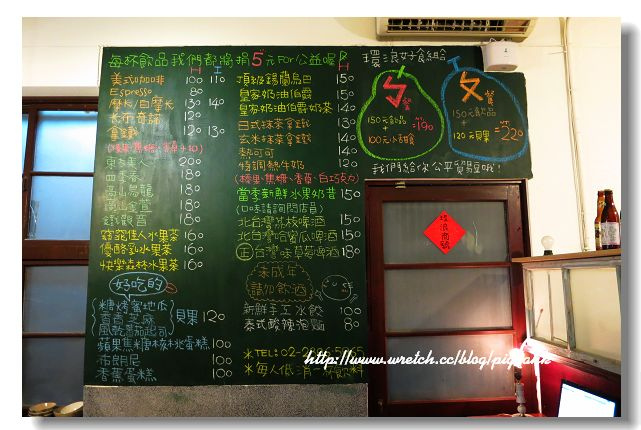 每杯飲品我們都將捐5元FOR公益喔
H I
美式咖啡 100 110
Espresso 80
摩卡/白摩卡 130 140
卡布奇諾 120
拿鐵 120 130
東方美人 200
四季春 160
高山烏龍 180
高山金萱 180
鐵觀音 180
窈窕佳人水果茶 160
優酪乳水果茶 160
快樂森林水果茶 160
好吃的
糖烤蜜地瓜
貝果 120
蘋果焦糖核桃蛋糕 100
布朗尼
香蕉蛋糕
H
頂級錫蘭烏巴 150
皇家奶油伯爵 150
皇家奶油伯爵奶茶 140
日式抹茶拿鐵 150
玄米抹茶拿鐵 140
熱可可 140
特調鮮牛奶 120
(榛果、焦糖、香草、白巧克力)
當季新鮮水果奶昔 150
(口味請詢問店員)
北台灣荔枝啤酒 150
北台灣哈蜜瓜啤酒 150
台灣味草莓啤酒 180
未成年
請勿飲酒
新鮮手工水餃 100
泰式酸辣泡麵 80
*TEL: 02-2
*每人低消一杯飲料
環浪好食組合
ㄅ餐
150元飲品
+
100元小甜食
=190
ㄆ餐
150元飲品
+
120元貝果
=220
我們給你公平貿易豆哦!
http://www.wretch.cc/blog/pig